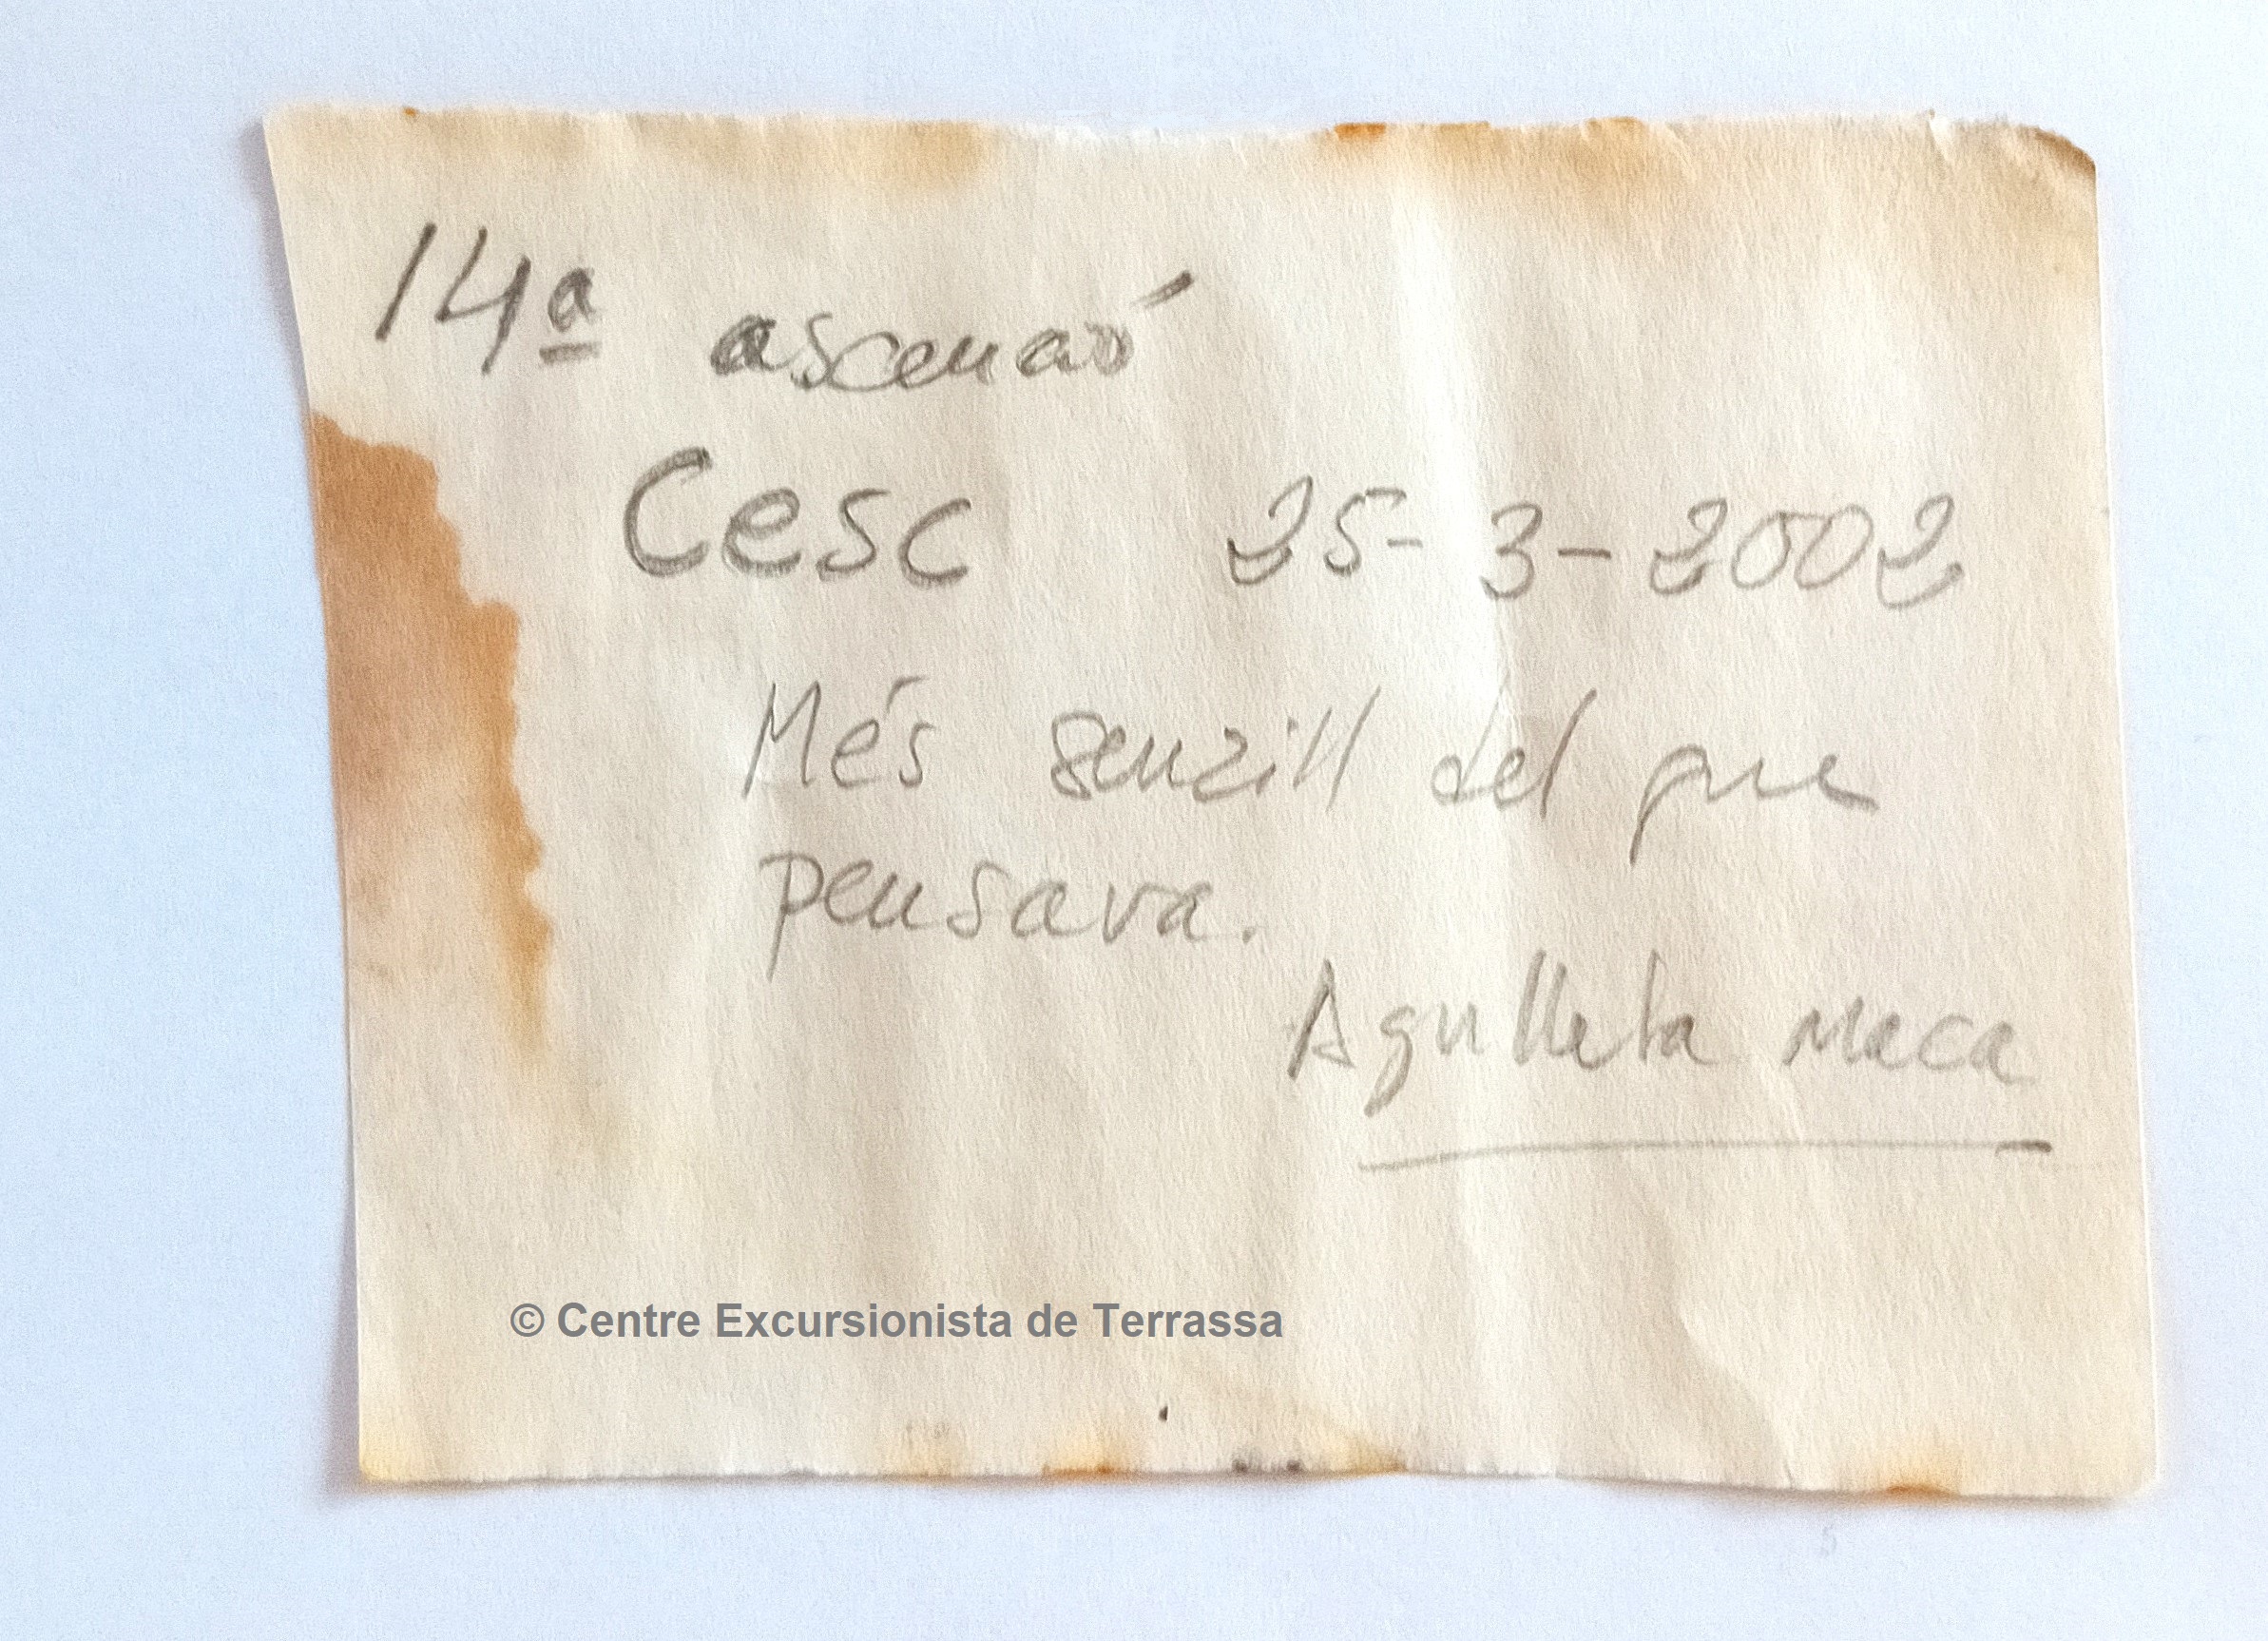 14ª ascenció
Cesc 25-3-2002
Més senzill del que
pensava.
Agulleta maca
© Centre Excursionista de Terrassa